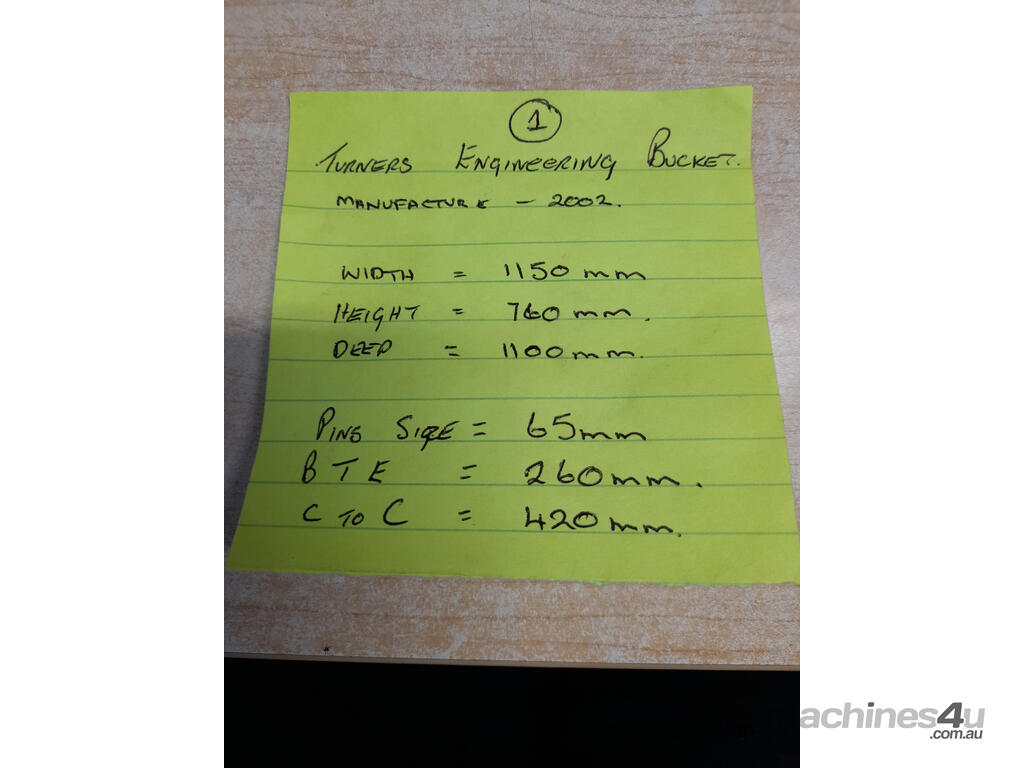 1
TURNERS ENGINEERING BUCKET.
MANUFACTURE - 2002.
WIDTH = 1150 mm
HEIGHT = 760 mm.
DEEP = 1100 mm.
PINS SIZE = 65mm
B T E = 260mm.
C TO C = 420mm.
machines4u
.com.au